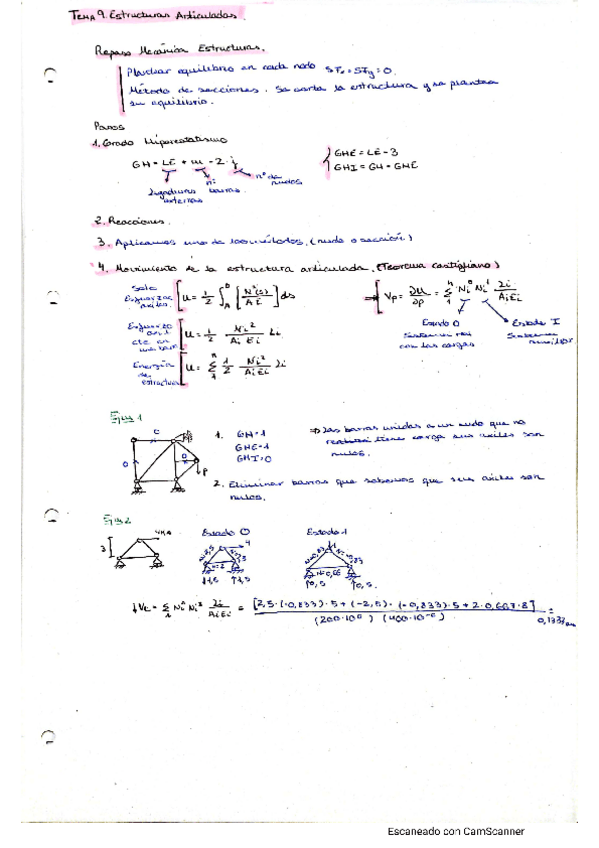 TEMA 9. Estructuras Articuladas.
Repaso Mecánica Estructuras.
Plantear equilibrio en cada nodo ΣFx = ΣFy = 0.
Método de secciones. Se corta la estructura y se plantea
su equilibrio.
Pasos
1. Grado Hiperestatismo
GH = LE + m - 2·j
ligaduras externas
nº barras
nº de nudos
GHE = LE - 3
GHI = GH - GHE
2. Reacciones.
3. Aplicamos uno de los métodos. (nudo o sección)
4. Movimiento de la estructura articulada. (Teorema castigliano)
Solo Esfuerzos axiles
U = 1/2 ∫ [N²(s)/A E] ds
Esfuerzo axil cte en una barra
U = 1/2 Ni²/Ai Ei Li
Energía de estructura
U = Σ 1/2 Ni²/Ai Ei Li
⇒ Vp = ∂U/∂P = Σ Ni⁰ Ni¹ Li/Ai Ei
Estado 0
con las cargas
Estado I
Ejm 1
C
D
P
1. GH = 1
GHE = 1
GHI = 0
⇒ Las barras unidas a un nudo que no
tiene carga sus axiles son
nulos.
2. Eliminar barras que sabemos que sus axiles son
nulos.
Ejm 2
3
Estado 0
4
1,5
1,5
Estado 1
N=0,66
0,5
0,5
↓Vc = Σ Ni⁰ Ni¹ Li/Ai Ei = [2,5·(-0,833)·5 + (-2,5)·(-0,833)·5 + 2·0,667·8] / (200·10⁶)(400·10⁻⁶) = 0,1333
Escaneado con CamScanner